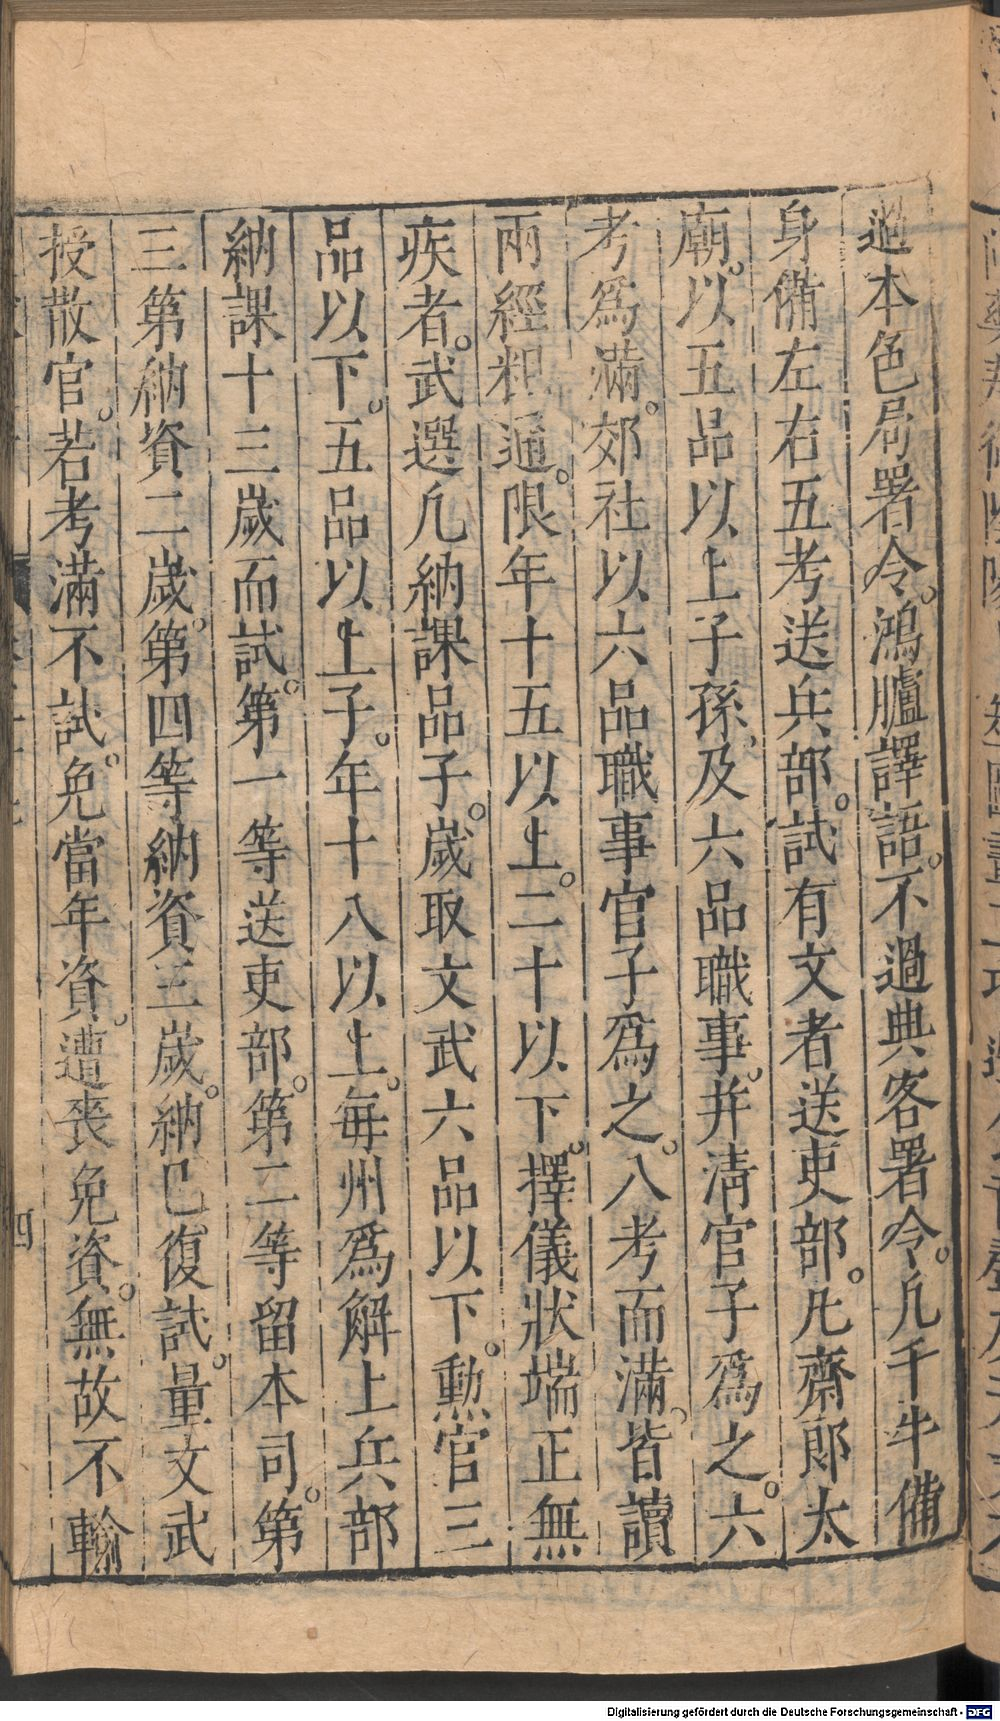 過本色局署令。鴻臚譯語。不過典客署令。凡千牛備
身備左右五考送兵部。試有文者送吏部。凡齋郎太
廟。以五品以上子孫、及六品職事。并清官子爲之。六
考爲滿。郊社以六品職事官子爲之。八考而滿。皆讀
兩經粗通。限年十五以上。二十以下。擇儀狀端正無
疾者。武選凡納課品子。歲取文武六品以下。勳官三
品以下。五品以上子。年十八以上。每州爲解上兵部
納課十三歲而試。第一等送吏部。第二等留本司。第
三第納資二歲。第四等納資三歲。納已復試。量文武
授散官。若考滿不試。免當年資。遭喪免資。無故不輸
四
Digitalisierung gefördert durch die Deutsche Forschungsgemeinschaft - DFG